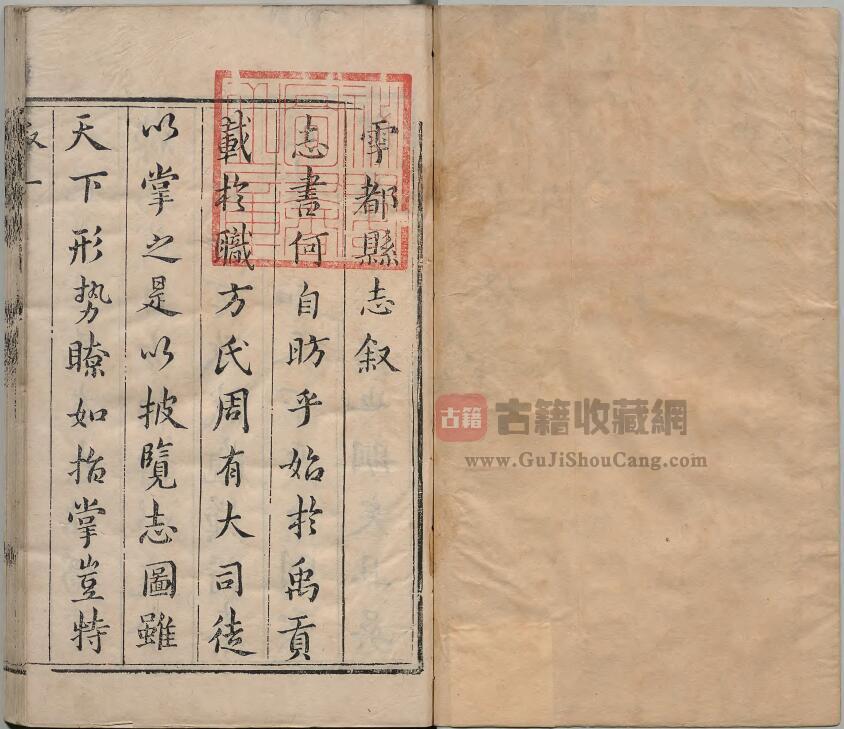 雩都縣志叙
志書何自昉乎始扵禹貢
載扵職方氏周有大司徒
以掌之是以披覽志圖雖
天下形势瞭如指掌豈特
叙一
古籍 古籍收藏網
www.GuJiShouCang.com